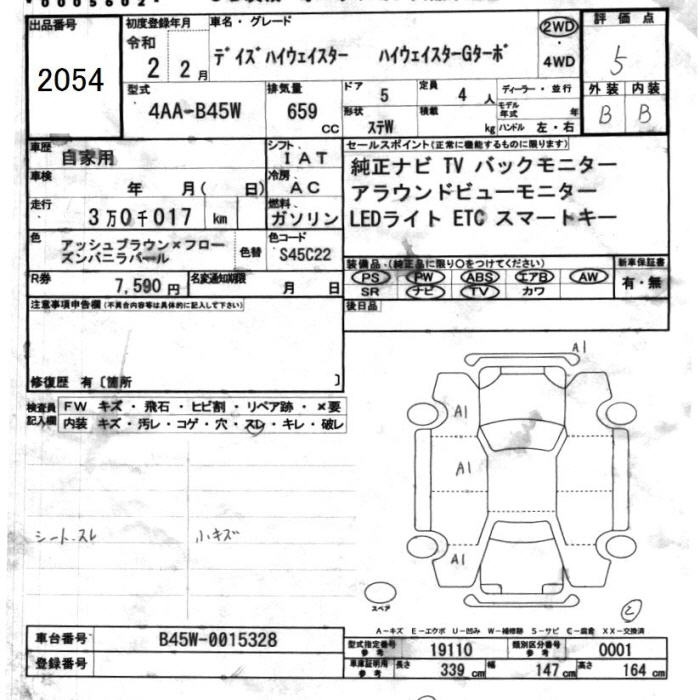 * 0 0 0 5 6 0 2 *
出品番号
2054
初度登録年月
令和
2 2月
車名・グレード
デイズハイウェイスター ハイウェイスターGターボ
2WD
・
4WD
評価点
5
外装 内装
B B
型式
4AA-B45W
排気量
659
CC
ドア 5
定員 4 人
形状 ステW
積載 kg
ディーラー・並行
モデル年式 年
ハンドル 左・右
車歴 自家用
シフト I A T
車検 年 月( 日)
冷房 A C
走行 3万0千017 km
燃料 ガソリン
色
アッシュブラウン×フロー
ズンバニラパール
色替
色コード
S45C22
R券 7,590円
名変通知期限 月 日
セールスポイント(正常に機能するものに限ります)
純正ナビ TV バックモニター
アラウンドビューモニター
LEDライト ETC スマートキー
装備品、(純正品に限り○をつけてください)
PS PW ABS エアB AW
SR ナビ TV カワ
新車保証書
有・無
後日品
注意事項申告欄(不具合内容等は具体的に記入して下さい)
修復歴 有〔箇所 〕
検査員
記入欄
FW キズ・飛石・ヒビ割・リペア跡・×要
内装 キズ・汚レ・コゲ・穴・スレ・キレ・破レ
シート スレ 小キズ
A1
A1
A1
A1
スペア
2
A-キズ E-エクボ U-凹み W-補修跡 S-サビ C-腐食 XX-交換済
車台番号 B45W-0015328
登録番号
型式指定番号
参考
19110
類別区分番号
参考
0001
車庫証明用
参考
長さ 339 cm 幅 147 cm 高さ 164 cm